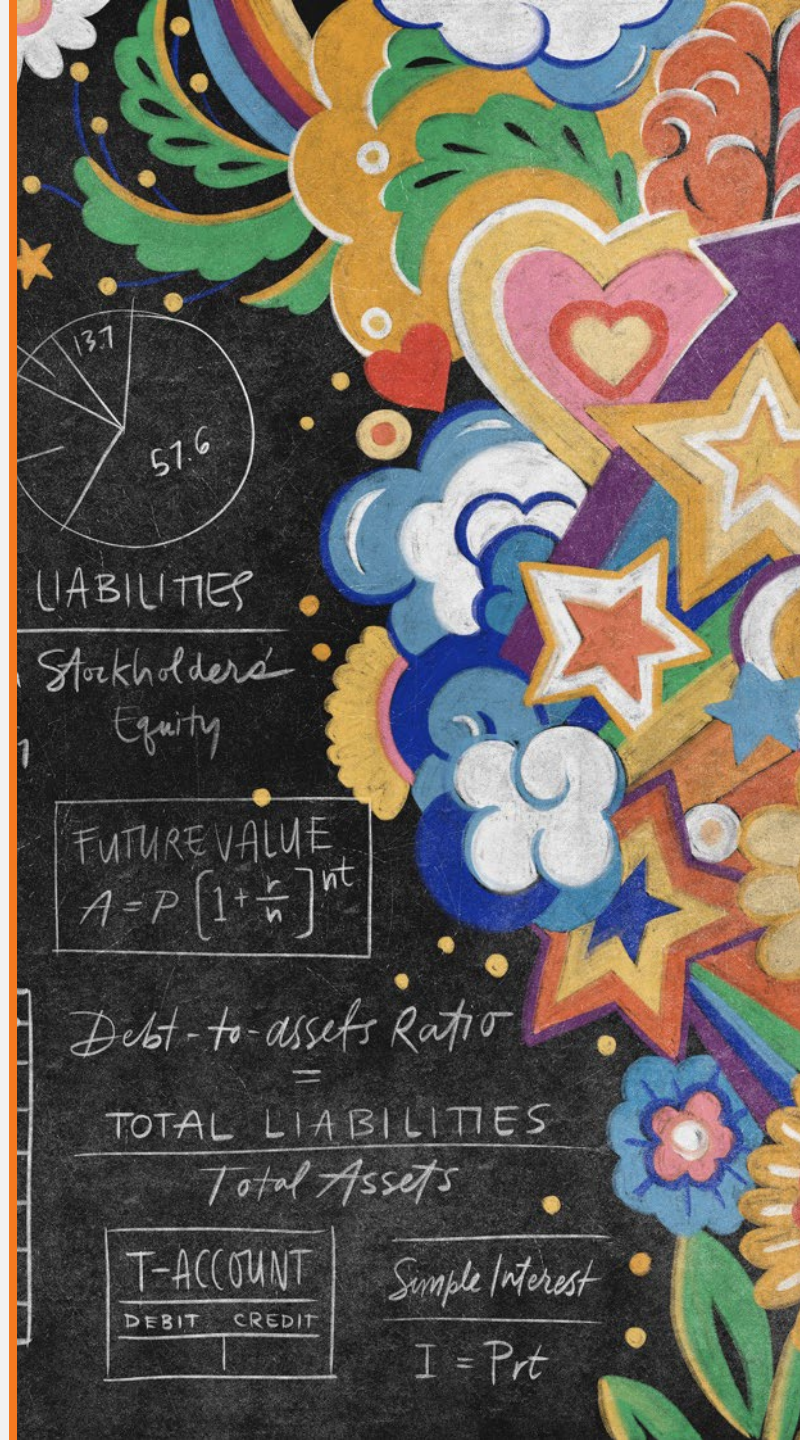 13.7
57.6
LIABILITIES
Stockholders'
Equity
FUTURE VALUE
A = P [1 + r/n]^nt
Debt-to-assets Ratio
=
TOTAL LIABILITIES
Total Assets
T-ACCOUNT
DEBIT CREDIT
Simple Interest
I = Prt